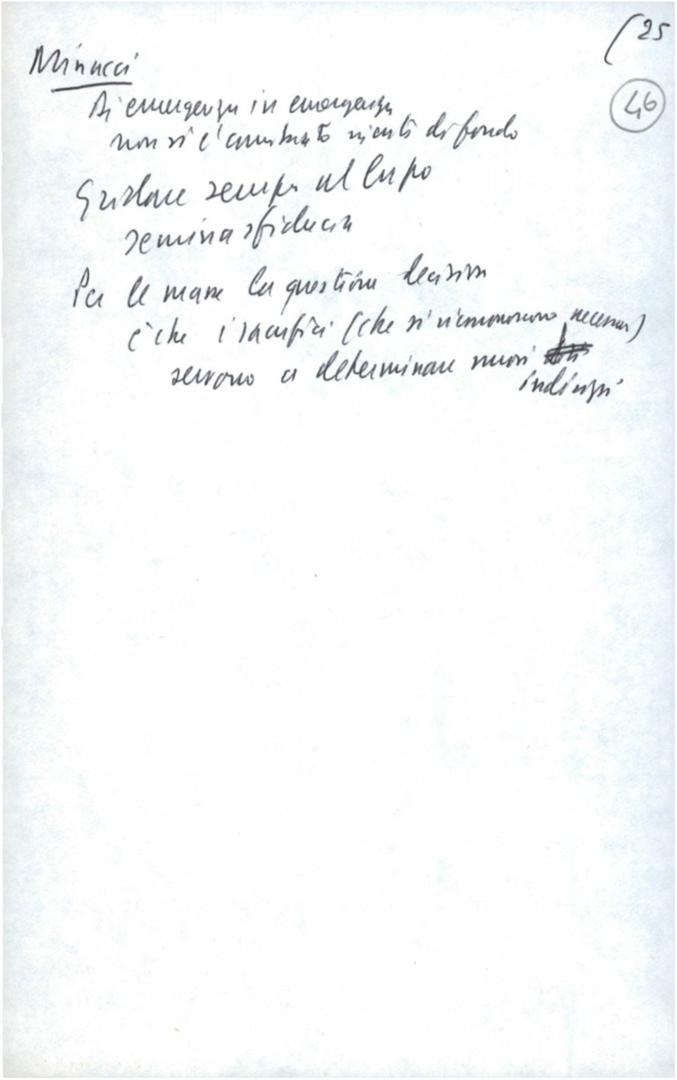 (25
46
Minucci
Di emergenza in emergenza
non si è cambiato niente di fondo
Gridare sempre al lupo
semina sfiducia
Per le masse la questione decisiva
è che i sacrifici (che si riconoscono necessari)
servono a determinare nuovi
indirizzi